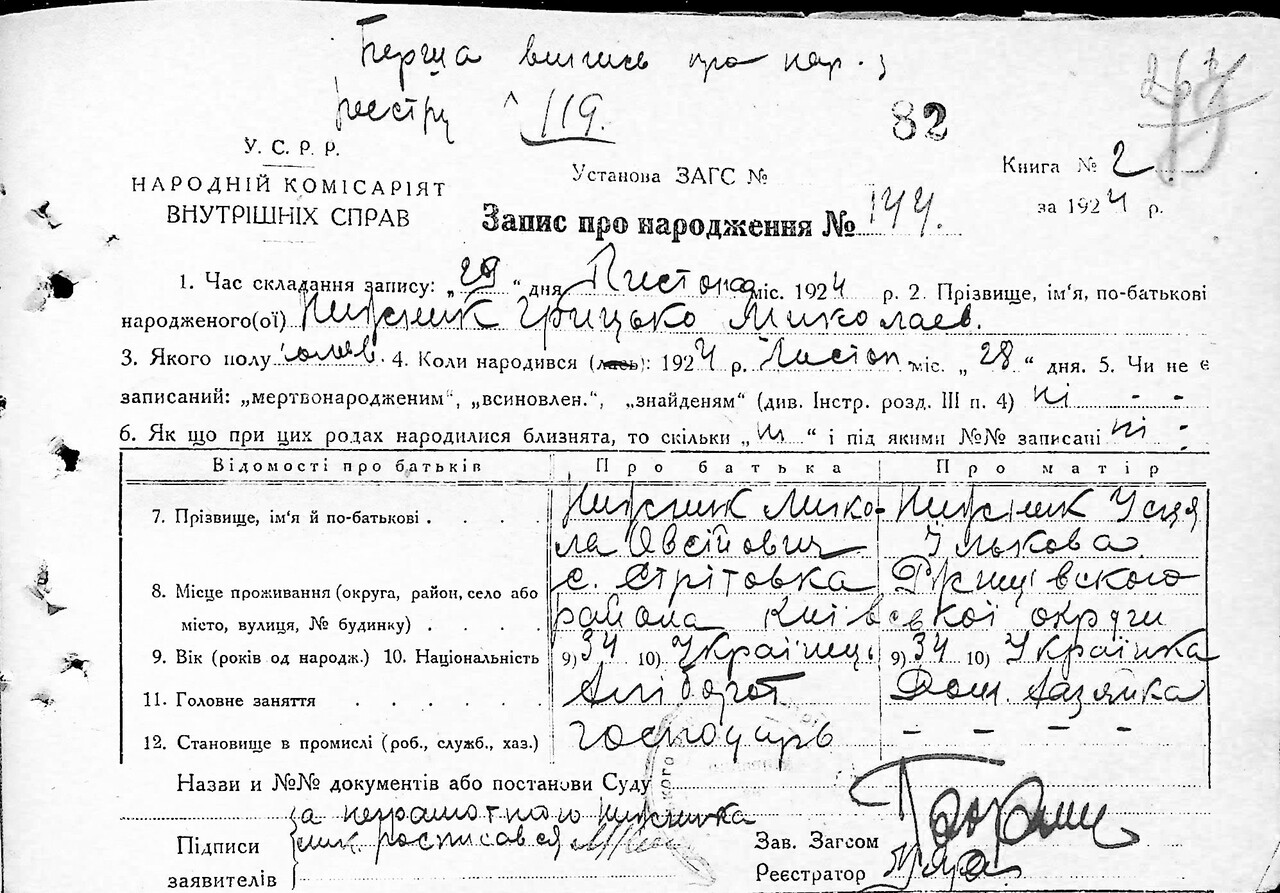 Перша випись про нар. з
реєстру № 119.
82
У. С. Р. Р.
НАРОДНІЙ КОМІСАРІЯТ
ВНУТРІШНІХ СПРАВ
Установа ЗАГС №
Книга № 2
за 1924 р.
Запис про народження № 144.
1. Час складання запису: „29“ дня Листопада міс. 1924 р. 2. Прізвище, ім'я, по-батькові
народженого(ої) Грицько Миколаев.
3. Якого полу 4. Коли народився (лась): 1924 р. Листоп міс. „28“ дня. 5. Чи не є
записаний: „мертвонародженим“, „всиновлен.“, „знайденям“ (див. Інстр. розд. III п. 4) ні - -
6. Як що при цих родах народилися близнята, то скільки „ні“ і під якими №№ записані ні -
Відомості про батьків Про батька Про матір
7. Прізвище, ім'я й по-батькові . . . . Мико- Усця
ла Овсійович Ількова
8. Місце проживання (округа, район, село або с. Стрітовка Ржищівского
місто, вулиця, № будинку) . . . . района Київської округи
9. Вік (років од народж.) 10. Національність 9) 34 10) Українець 9) 34 10) Українка
11. Головне заняття . . . . . . Хлібороб Дом. Хазяйка
12. Становище в промислі (роб., служб., хаз.) господарь - - - -
Назви и №№ документів або постанови Суду
Підписи
заявителів
за неграмотного
росписався
Зав. Загсом
Реєстратор